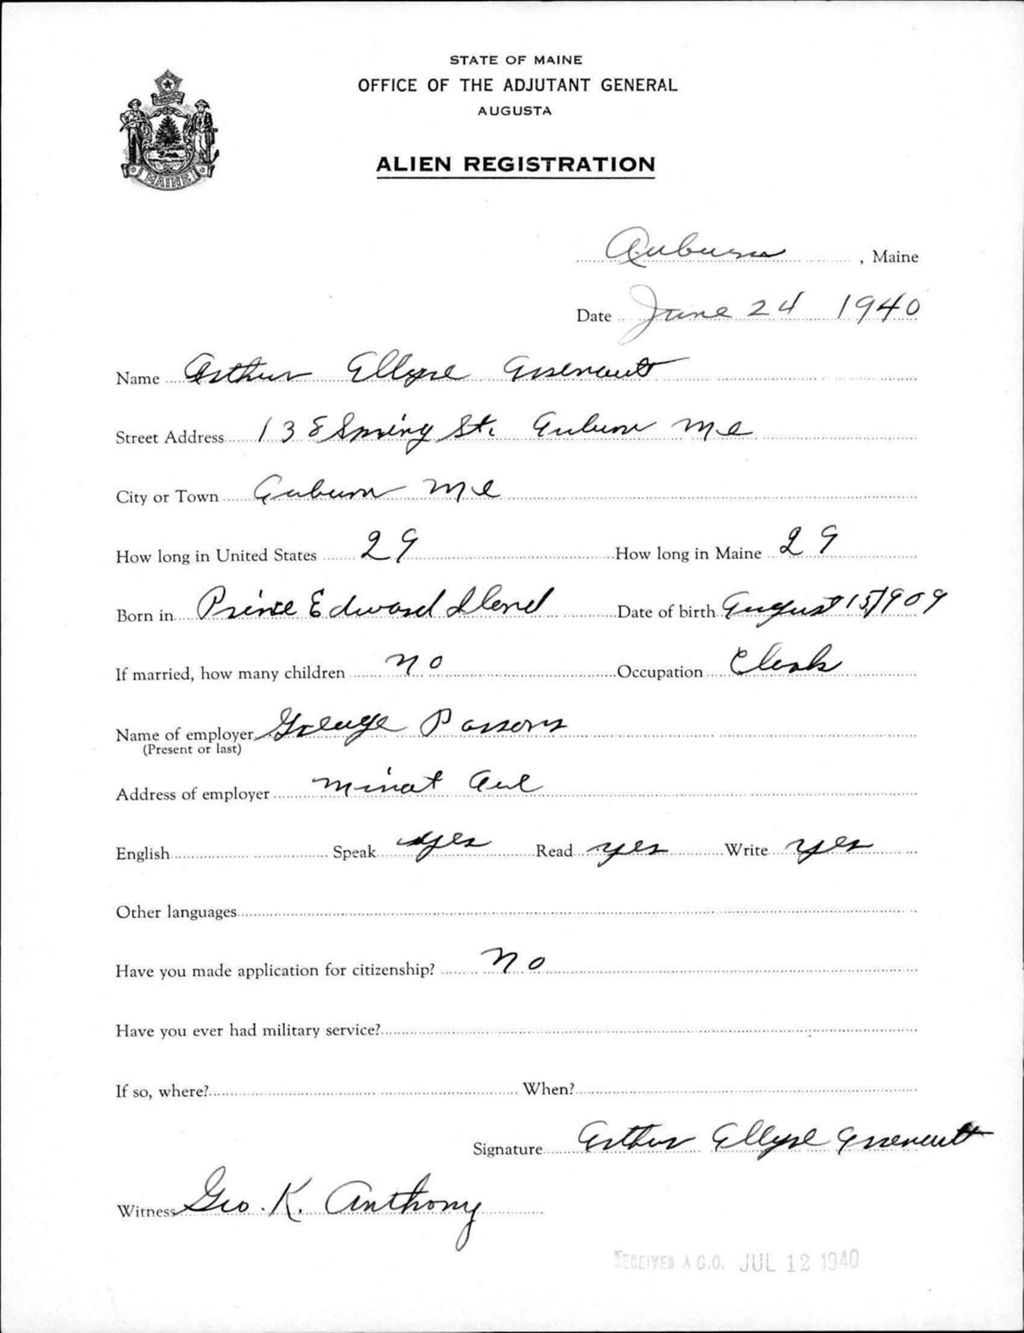 STATE OF MAINE
OFFICE OF THE ADJUTANT GENERAL
AUGUSTA
ALIEN REGISTRATION
MAINE
Auburn, Maine
Date June 24 1940
Name Arthur Assenault
Street Address 138 Spring St. Auburn Me
City or Town Auburn Me
How long in United States 29 How long in Maine 29
Born in Prince Edward Island Date of birth August 15/909
If married, how many children no Occupation Clerk
Name of employer George Parsons
(Present or last)
Address of employer Minot Ave
English Speak yes Read yes Write yes
Other languages
Have you made application for citizenship? No
Have you ever had military service?
If so, where? When?
Signature Arthur Assenault
Witness Geo. K. Anthony
RECEIVED A.G.O. JUL 12 1940